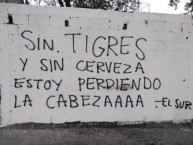 SIN. TIGRES
Y SIN CERVEZA
ESTOY PERDIENDO
LA CABEZAAAA .-EL SUR